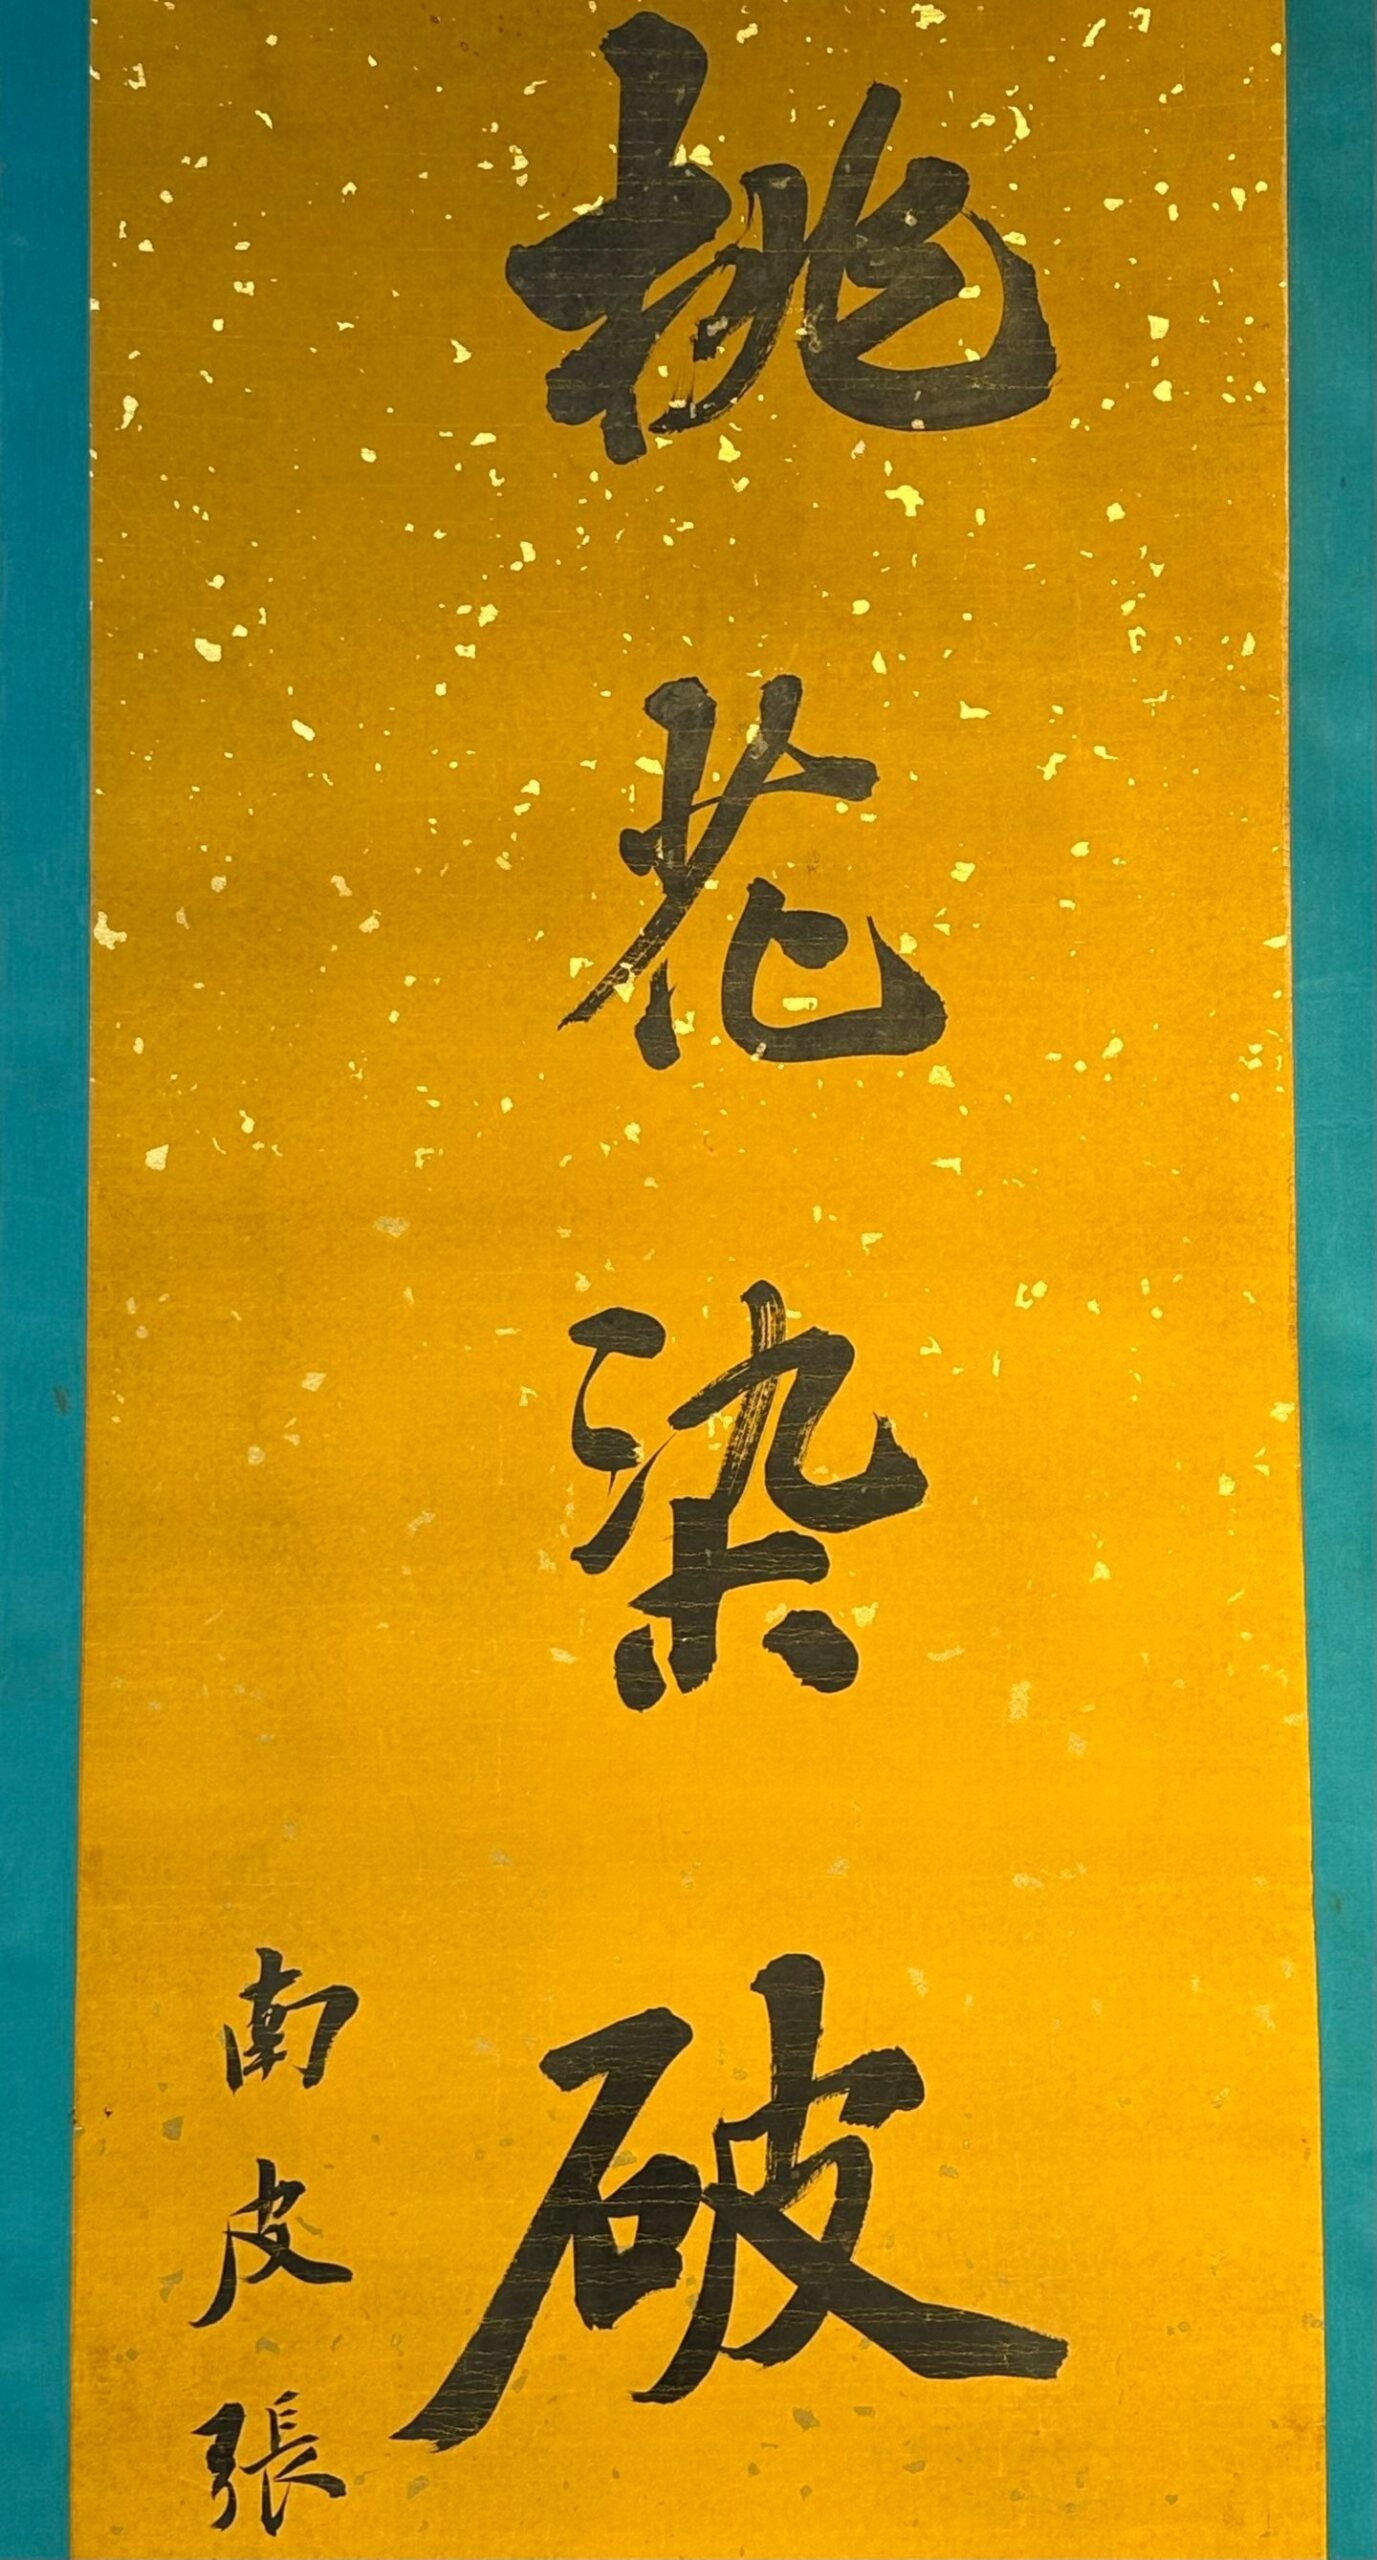 桃花染破
南皮張